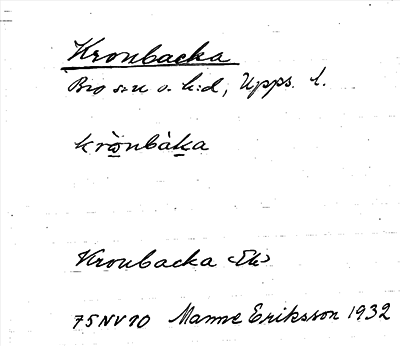 Kronbacka
Bro sn o. h:d, Upps. l.
krò̱nbàḵa
Kronbacka <Ek>
75NV90 Manne Eriksson 1932